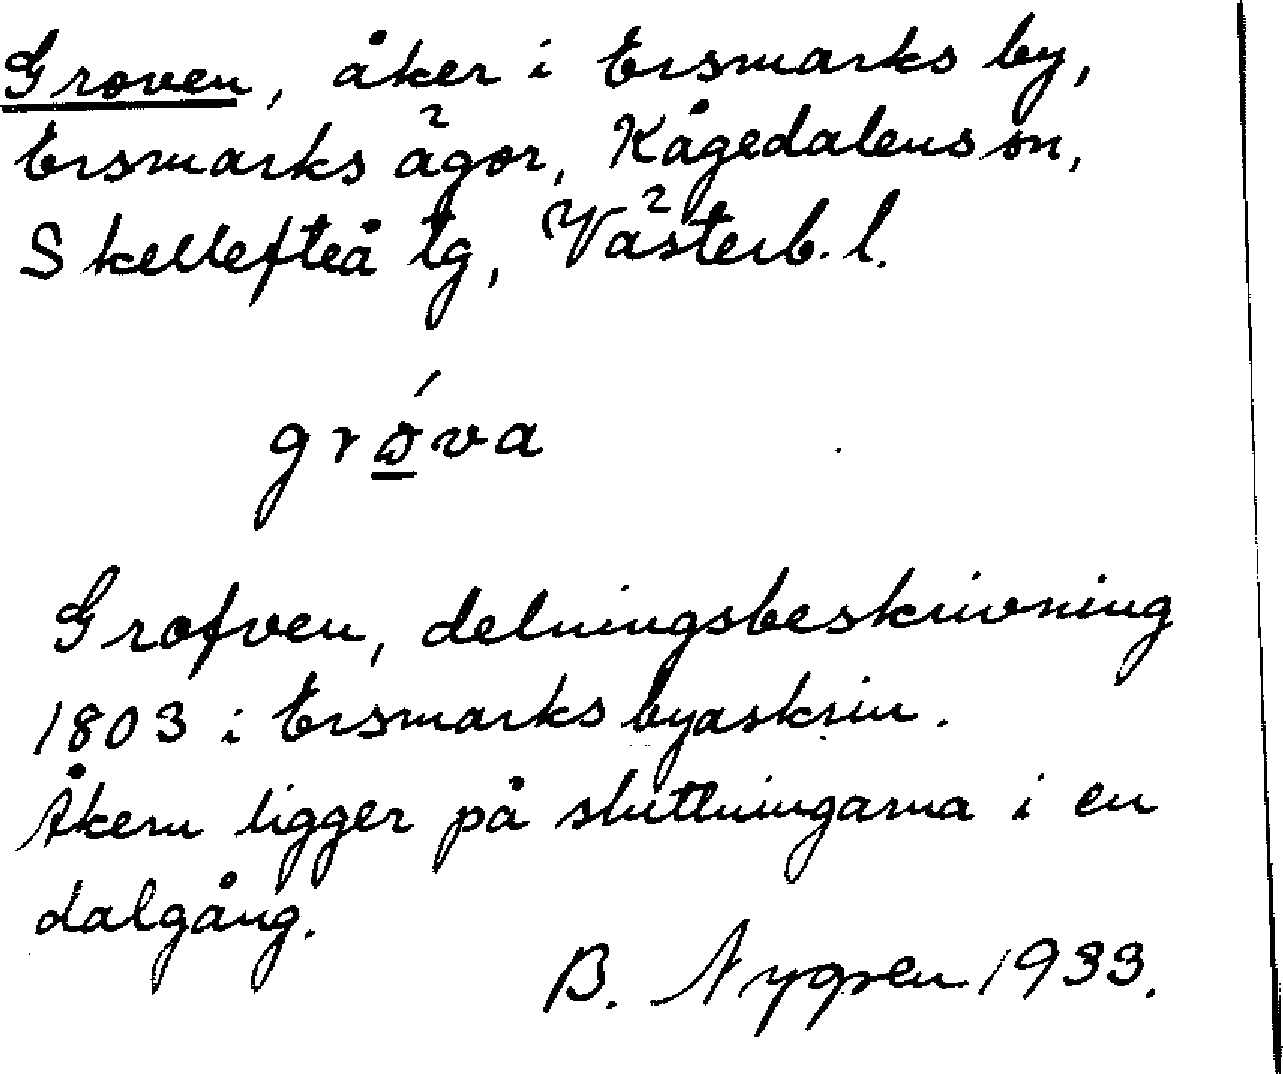 Groven, åker i Ersmarks by,
Ersmarks ägor, Kågedalens sn,
Skellefteå tg, Västerb. l.
gró̲va
Grofven, delningsbeskrivning
1803 i Ersmarks byaskrin.
Åkern ligger på sluttningarna i en
dalgång.
B. Nygren 1933.